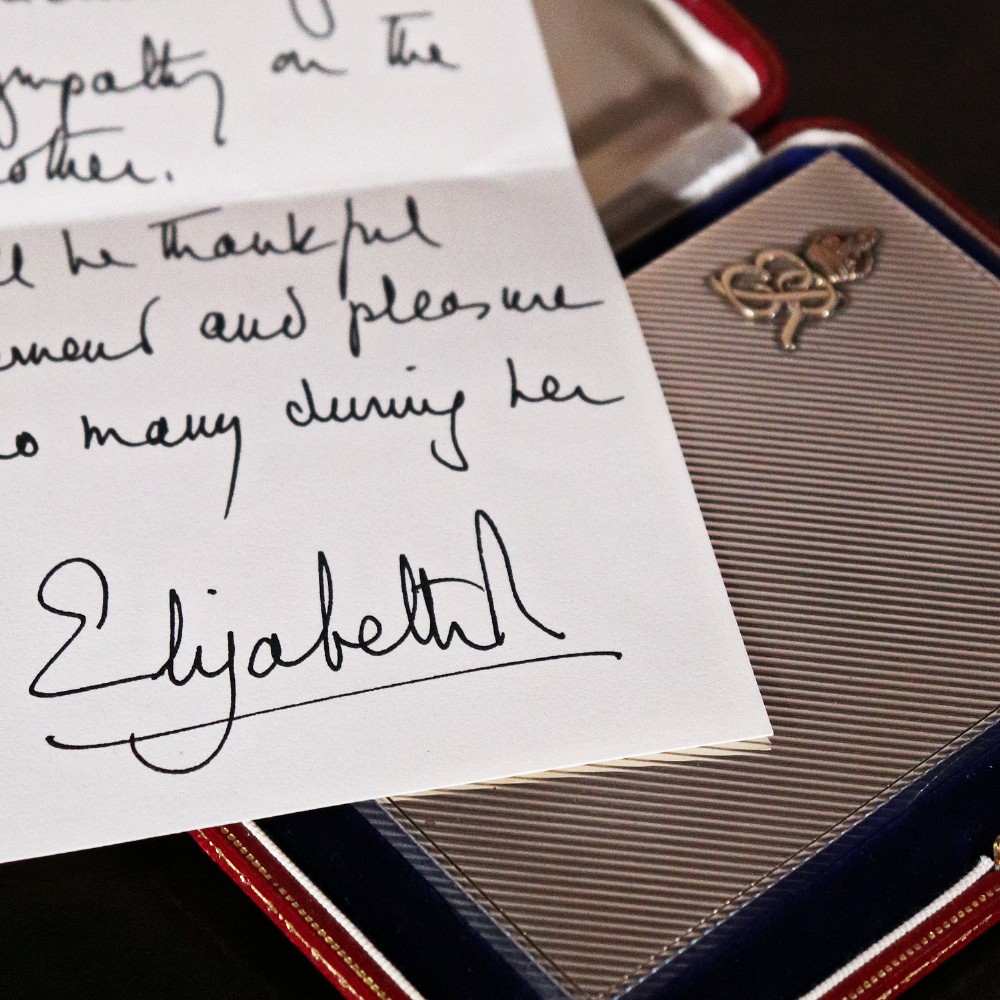 sympathy on the
other.
ll be thankful
ement and pleasure
so many during her
Elizabeth R